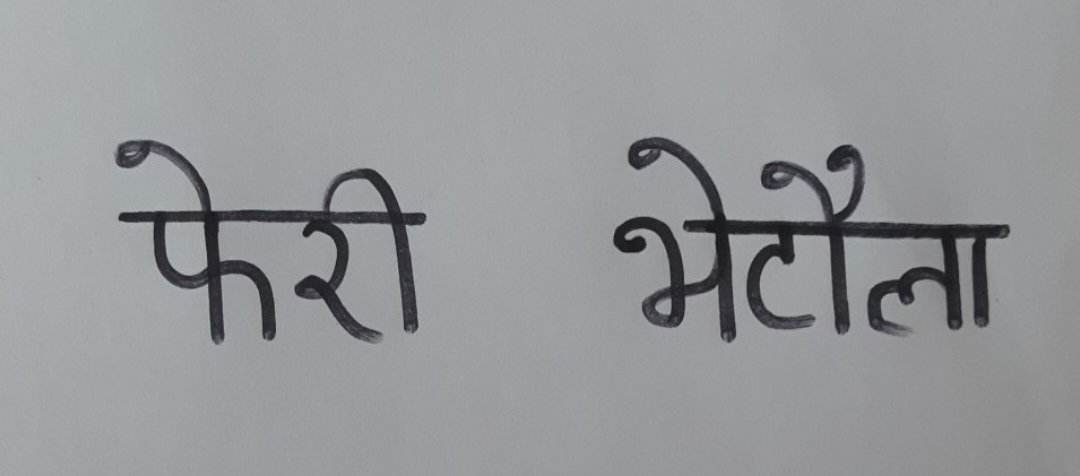 फेरी भेटौला